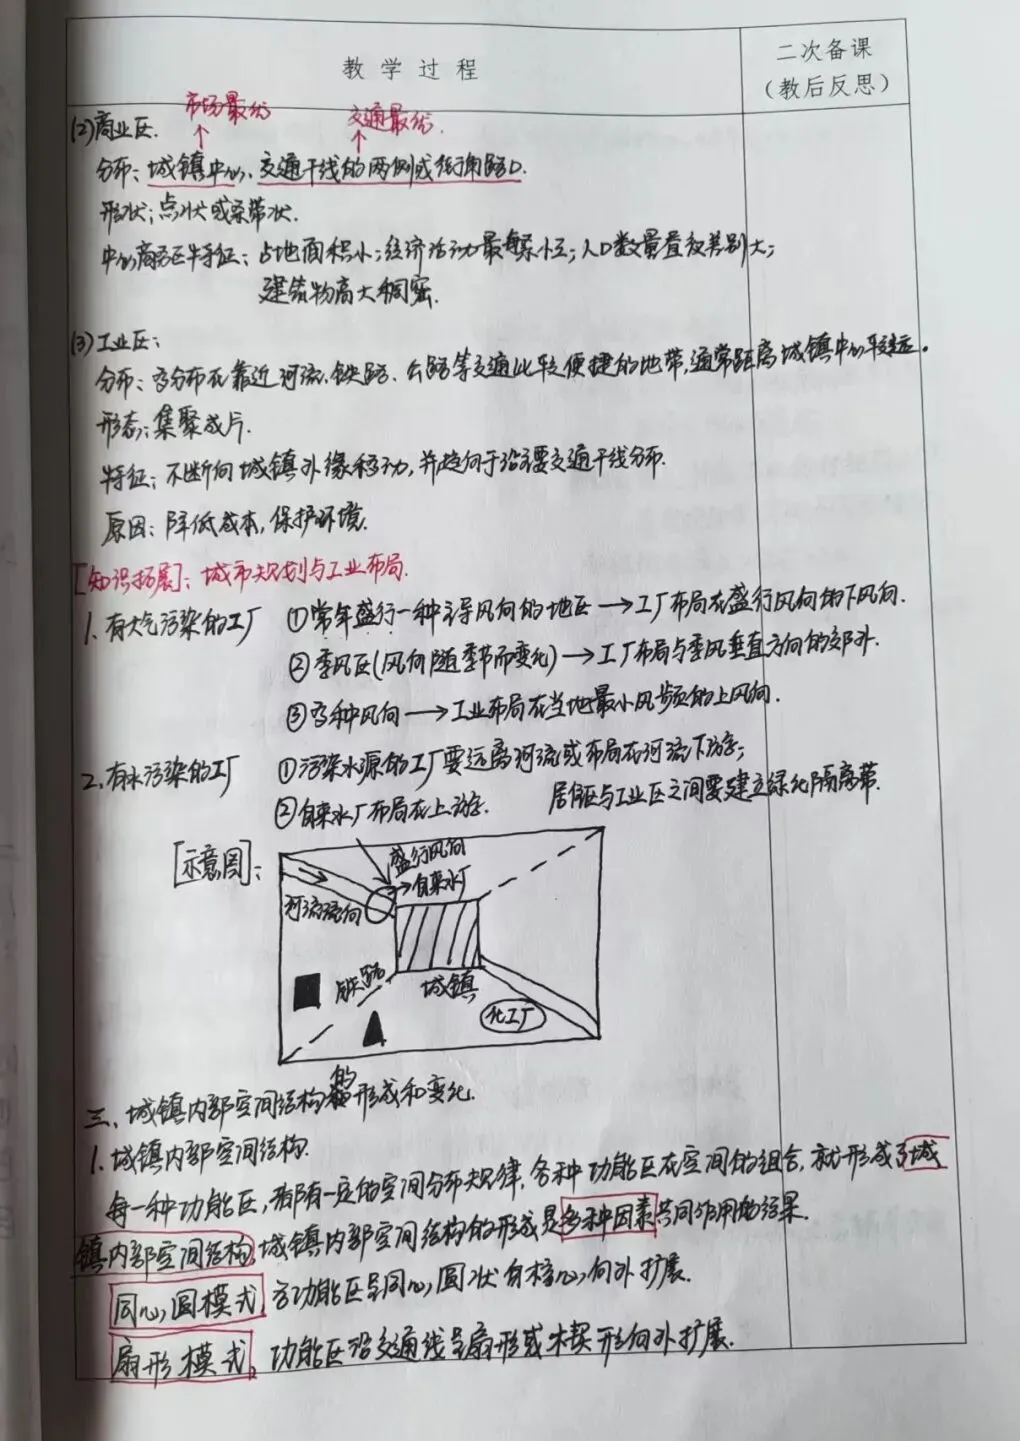 教学过程
二次备课
（教后反思）
市场最优
交通最优.
(2)商业区.
分布：城镇中心、交通干线的两侧或街角路口.
形状：点状或条带状.
中心商务区特征：占地面积小；经济活动最繁忙；人口数量昼夜差别大；
建筑物高大稠密.
(3)工业区：
分布：多分布在靠近河流、铁路、公路等交通比较便捷的地带，通常距离城镇中心较远。
形态：集聚成片.
特征：不断向城镇外缘移动，并趋向于沿主要交通干线分布.
原因：降低成本，保护环境.
[知识拓展]：城市规划与工业布局.
1.有大气污染的工厂 ①常年盛行一种主导风向的地区→工厂布局在盛行风向的下风向.
②季风区(风向随季节而变化)→工厂布局与季风垂直方向的郊外.
③多种风向→工业布局在当地最小风频的上风向.
2.有水污染的工厂 ①污染水源的工厂要远离河流或布局在河流下游；
②自来水厂布局在上游. 居住区与工业区之间要建立绿化隔离带.
[示意图]：
盛行风向
→自来水厂
河流流向
铁路
城镇
化工厂
三、城镇内部空间结构的形成和变化.
1.城镇内部空间结构.
每一种功能区，都有一定的空间分布规律，各种功能区在空间的组合，就形成了城
镇内部空间结构，城镇内部空间结构的形成是多种因素共同作用的结果.
同心圆模式，各功能区呈同心圆状自核心向外扩展.
扇形模式，功能区沿交通线呈扇形或楔形向外扩展.